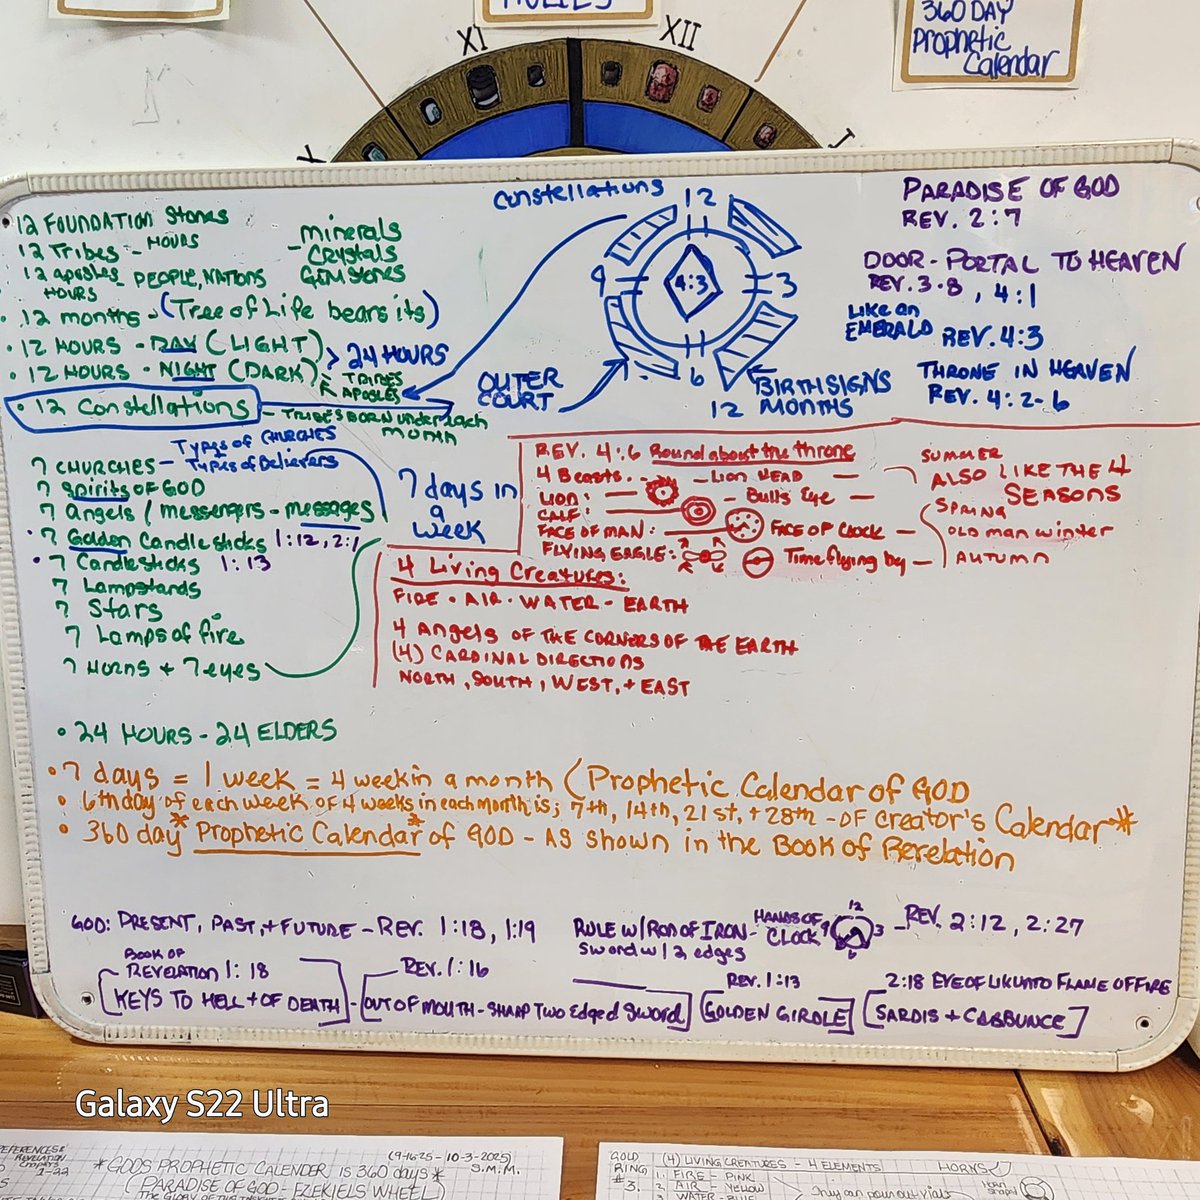 360 DAY
Prophetic
Calendar
XI
XII
I
X
12 FOUNDATION Stones
12 Tribes - HOURS
12 aposles - PEOPLE, NATIONS
HOURS
- minerals
CRYstals
GEMStones
• 12 months - (Tree of Life bears its)
• 12 HOURS - DAY (LIGHT)
• 12 HOURS - NIGHT (DARK)
> 24 HOURS
TRIBES
APOSLES
• 12 Constellations
- TRIBES BORN under each
month
Constellations
12
9
4:3
3
6
OUTER
COURT
BIRTHSIGNS
12 MONTHS
PARADISE OF GOD
REV. 2:7
DOOR - PORTAL TO HEAVEN
REV. 3:8, 4:1
LIKE an
EMERALD REV. 4:3
THRONE IN HEAVEN
REV. 4:2-6
Types of CHURCHES
7 CHURCHES - Types of Believers
7 Spirits OF GOD
7 Angels / messengers - messages
• 7 Golden Candlesticks 1:12, 2:1
• 7 Candlesticks 1:13
7 Lampstands
7 Stars
7 Lamps of fire
7 HORNS + 7 eyes
7 days in
a
week
REV. 4:6 Round about the throne
4 Beasts. - Lion HEAD
LION:
- Bull's Eye
CALF:
FACE OF MAN: FACE OF CLOCK
FLYING EAGLE: Time flying by
SUMMER
ALSO LIKE THE 4
SEASONS
SPRING
OLD man winter
AUTUMN
4 Living Creatures:
FIRE • AIR • WATER - EARTH
4 Angels OF THE CORNERS OF THE EARTH
(4) CARDINAL DIRECTIONS
NORTH, SOUTH, WEST, + EAST
• 24 HOURS - 24 ELDERS
• 7 days = 1 week = 4 week in a month (Prophetic Calendar of GOD
• 6th day of each week of 4 weeks in each month is; 7th, 14th, 21st, + 28th - OF Creator's Calendar*
• 360 day* Prophetic Calendar* of GOD - AS shown in the BOOK of Revelation
GOD: PRESENT, PAST, + FUTURE - REV. 1:18, 1:19
RULE W/ ROD OF IRON -
Sword w/ 2 edges
HANDS OF
CLOCK
12
9
3
6
- REV. 2:12, 2:27
BOOK OF
REVELATION 1:18
[KEYS TO HELL + OF DEATH]
REV. 1:16
[OUT OF MOUTH - SHARP Two Edged Sword]
REV. 1:13
[GOLDEN GIRDLE]
2:18 EYE OF LIKUNTO FLAME OF FIRE
[SARDIS + CABBUNCE]
Galaxy S22 Ultra
REVELATION
1-22
(9-16-25 - 10-3-2025)
S.M.M.
*GODS PROPHETIC CALENDER IS 360 days*
(PARADISE OF GOD - EZEKIELS WHEEL)
GOLD
RING
#3.
(4) LIVING CREATURES - 4 ELEMENTS
1. FIRE - PINK
2. AIR - YELLOW
3. WATER - BLUE
HORNS
They can pour out vials